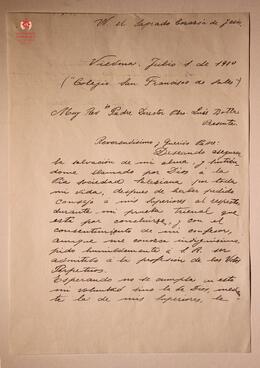 V. el Sagrado Corazón de Jesús
Viedma. Julio 1 de 1910
("Colegio San Francisco de Sales")
Muy Rev Padre Director Pbro. Luis
Presente.
Reverendísimo y Querido Padre:
Deseando asegurar
la salvación de mi alma y
dome llamado por Dios a la
Pía Sociedad Salesiana, por toda
mi vida, después de haber pedido
consejo a mis Superiores al respecto,
durante mi prueba trienal que
está por concluirse, y con el
consentimiento de mi confesor,
aunque me conozca indignísimo
pido humildemente a S. R. ser
admitido a la profesión de los Votos
Perpetuos.
Esperando no se cumpla en esto
mi voluntad sino la de Dios, median
te la de mis Superiores, le